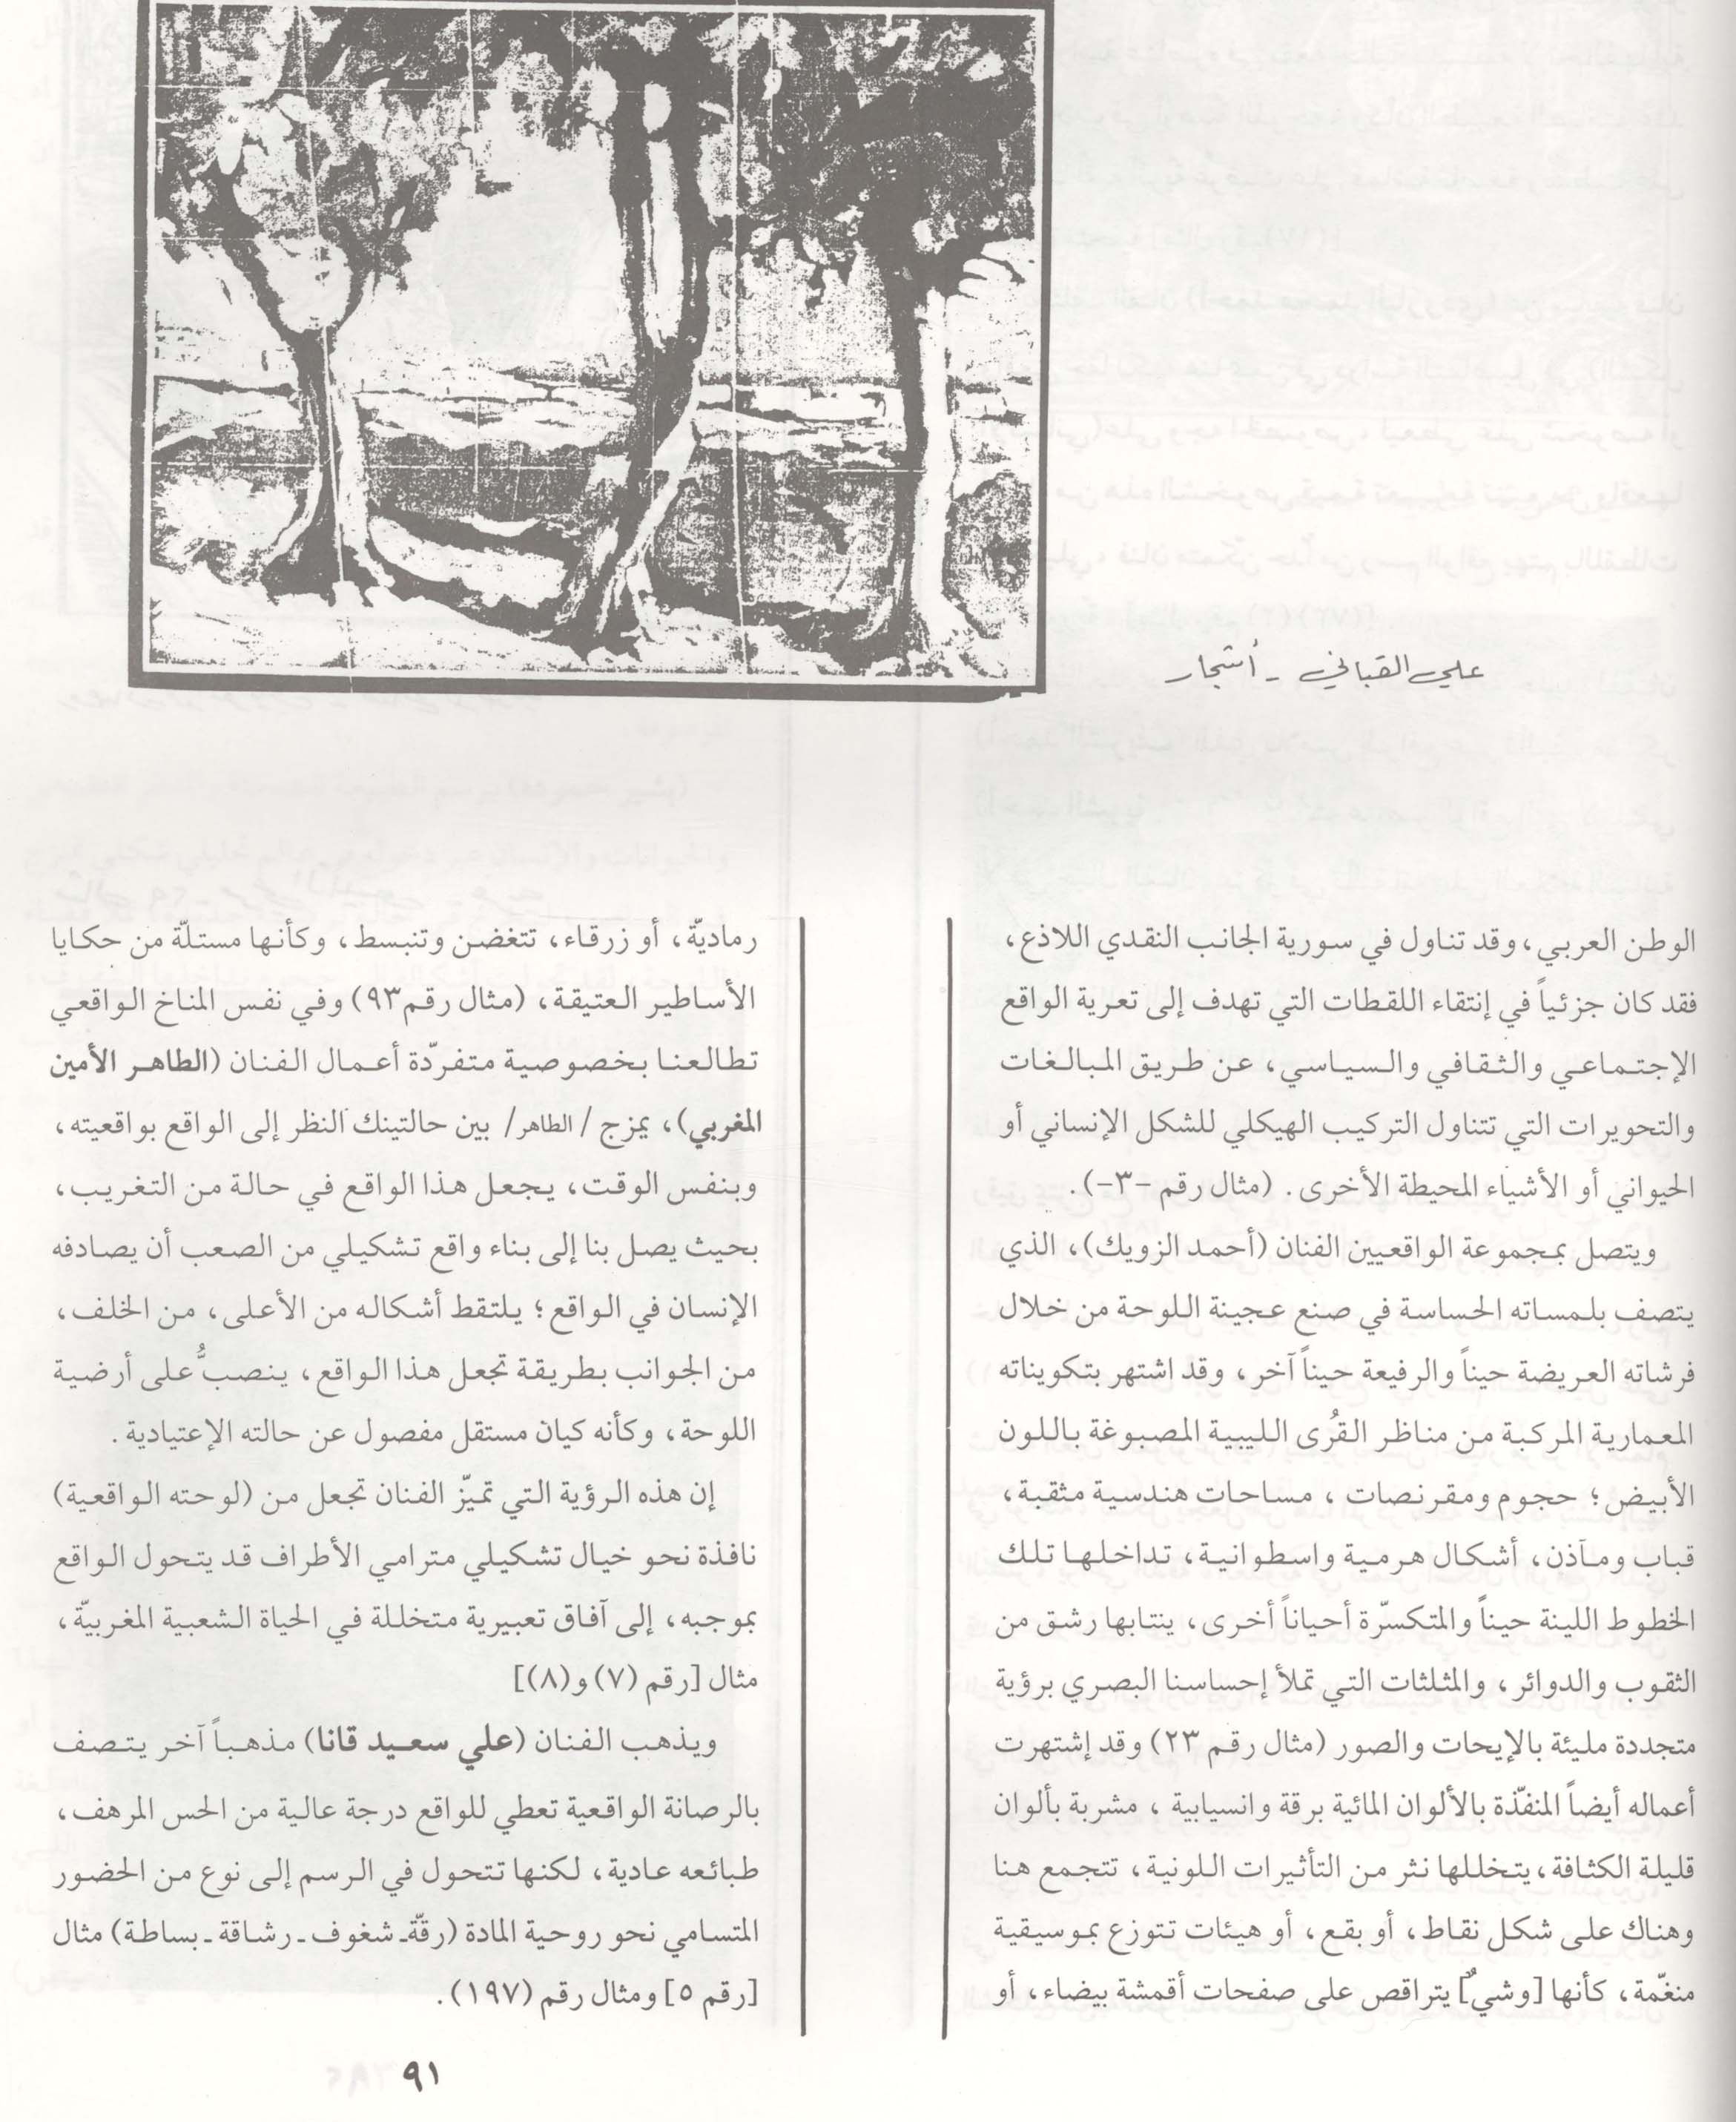 علي القباني - أشجار
الوطن العربي، وقد تناول في سورية الجانب النقدي اللاذع،
فقد كان جزئياً في إنتقاء اللقطات التي تهدف إلى تعرية الواقع
الإجتماعي والثقافي والسياسي، عن طريق المبالغات
والتحويرات التي تتناول التركيب الهيكلي للشكل الإنساني أو
الحيواني أو الأشياء المحيطة الأخرى. (مثال رقم -٣-).
ويتصل بمجموعة الواقعيين الفنان (أحمد الزويك)، الذي
يتصف بلمساته الحساسة في صنع عجينة اللوحة من خلال
فرشاته العريضة حيناً والرفيعة حيناً آخر، وقد اشتهر بتكويناته
المعمارية المركبة من مناظر القُرى الليبية المصبوغة باللون
الأبيض؛ حجوم ومقرنصات، مساحات هندسية مثقبة،
قباب ومآذن، أشكال هرمية واسطوانية، تداخلها تلك
الخطوط اللينة حيناً والمتكسّرة أحياناً أخرى، ينتابها رشق من
الثقوب والدوائر، والمثلثات التي تملأ إحساسنا البصري برؤية
متجددة مليئة بالإيحات والصور (مثال رقم ٢٣) وقد إشتهرت
أعماله أيضاً المنفّذة بالألوان المائية برقة وانسيابية، مشربة بألوان
قليلة الكثافة، يتخللها نثر من التأثيرات اللونية، تتجمع هنا
وهناك على شكل نقاط، أو بقع، أو هيئات تتوزع بموسيقية
منغّمة، كأنها [وشيٌ] يتراقص على صفحات أقمشة بيضاء، أو
رماديّة، أو زرقاء، تتغضن وتنبسط، وكأنها مستلّة من حكايا
الأساطير العتيقة، (مثال رقم ٩٣) وفي نفس المناخ الواقعي
تطالعنا بخصوصية متفرّدة أعمال الفنان (الطاهر الأمين
المغربي)، يمزج /الطاهر/ بين حالتينك النظر إلى الواقع بواقعيته،
وبنفس الوقت، يجعل هذا الواقع في حالة من التغريب،
بحيث يصل بنا إلى بناء واقع تشكيلي من الصعب أن يصادفه
الإنسان في الواقع؛ يلتقط أشكاله من الأعلى، من الخلف،
من الجوانب بطريقة تجعل هذا الواقع، ينصبُّ على أرضية
اللوحة، وكأنه كيان مستقل مفصول عن حالته الإعتيادية.
إن هذه الرؤية التي تميّز الفنان تجعل من (لوحته الواقعية)
نافذة نحو خيال تشكيلي مترامي الأطراف قد يتحول الواقع
بموجبه، إلى آفاق تعبيرية متخللة في الحياة الشعبية المغربيّة،
مثال [رقم (٧) و(٨)]
ويذهب الفنان (علي سعيد قانا) مذهباً آخر يتصف
بالرصانة الواقعية تعطي للواقع درجة عالية من الحس المرهف،
طبائعه عادية، لكنها تتحول في الرسم إلى نوع من الحضور
المتسامي نحو روحية المادة (رقّة- شغوف - رشاقة - بساطة) مثال
[رقم ٥] ومثال رقم (١٩٧).
٩١